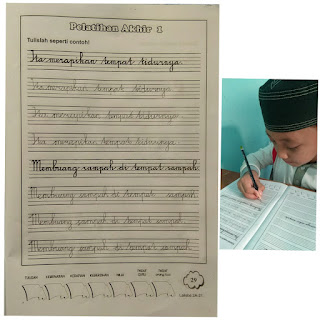 Pelatihan Akhir 1
Tulislah seperti contoh!
Ita merapikan tempat tidurnya
Ita merapikan tempat tidurnya
Ita merapikan tempat tidurnya
Ita merapikan tempat tidurnya
Membuang sampah di tempat sampah
Membuang sampah di tempat sampah
Membuang sampah di tempat sampah
Membuang sampah di tempat sampah
29